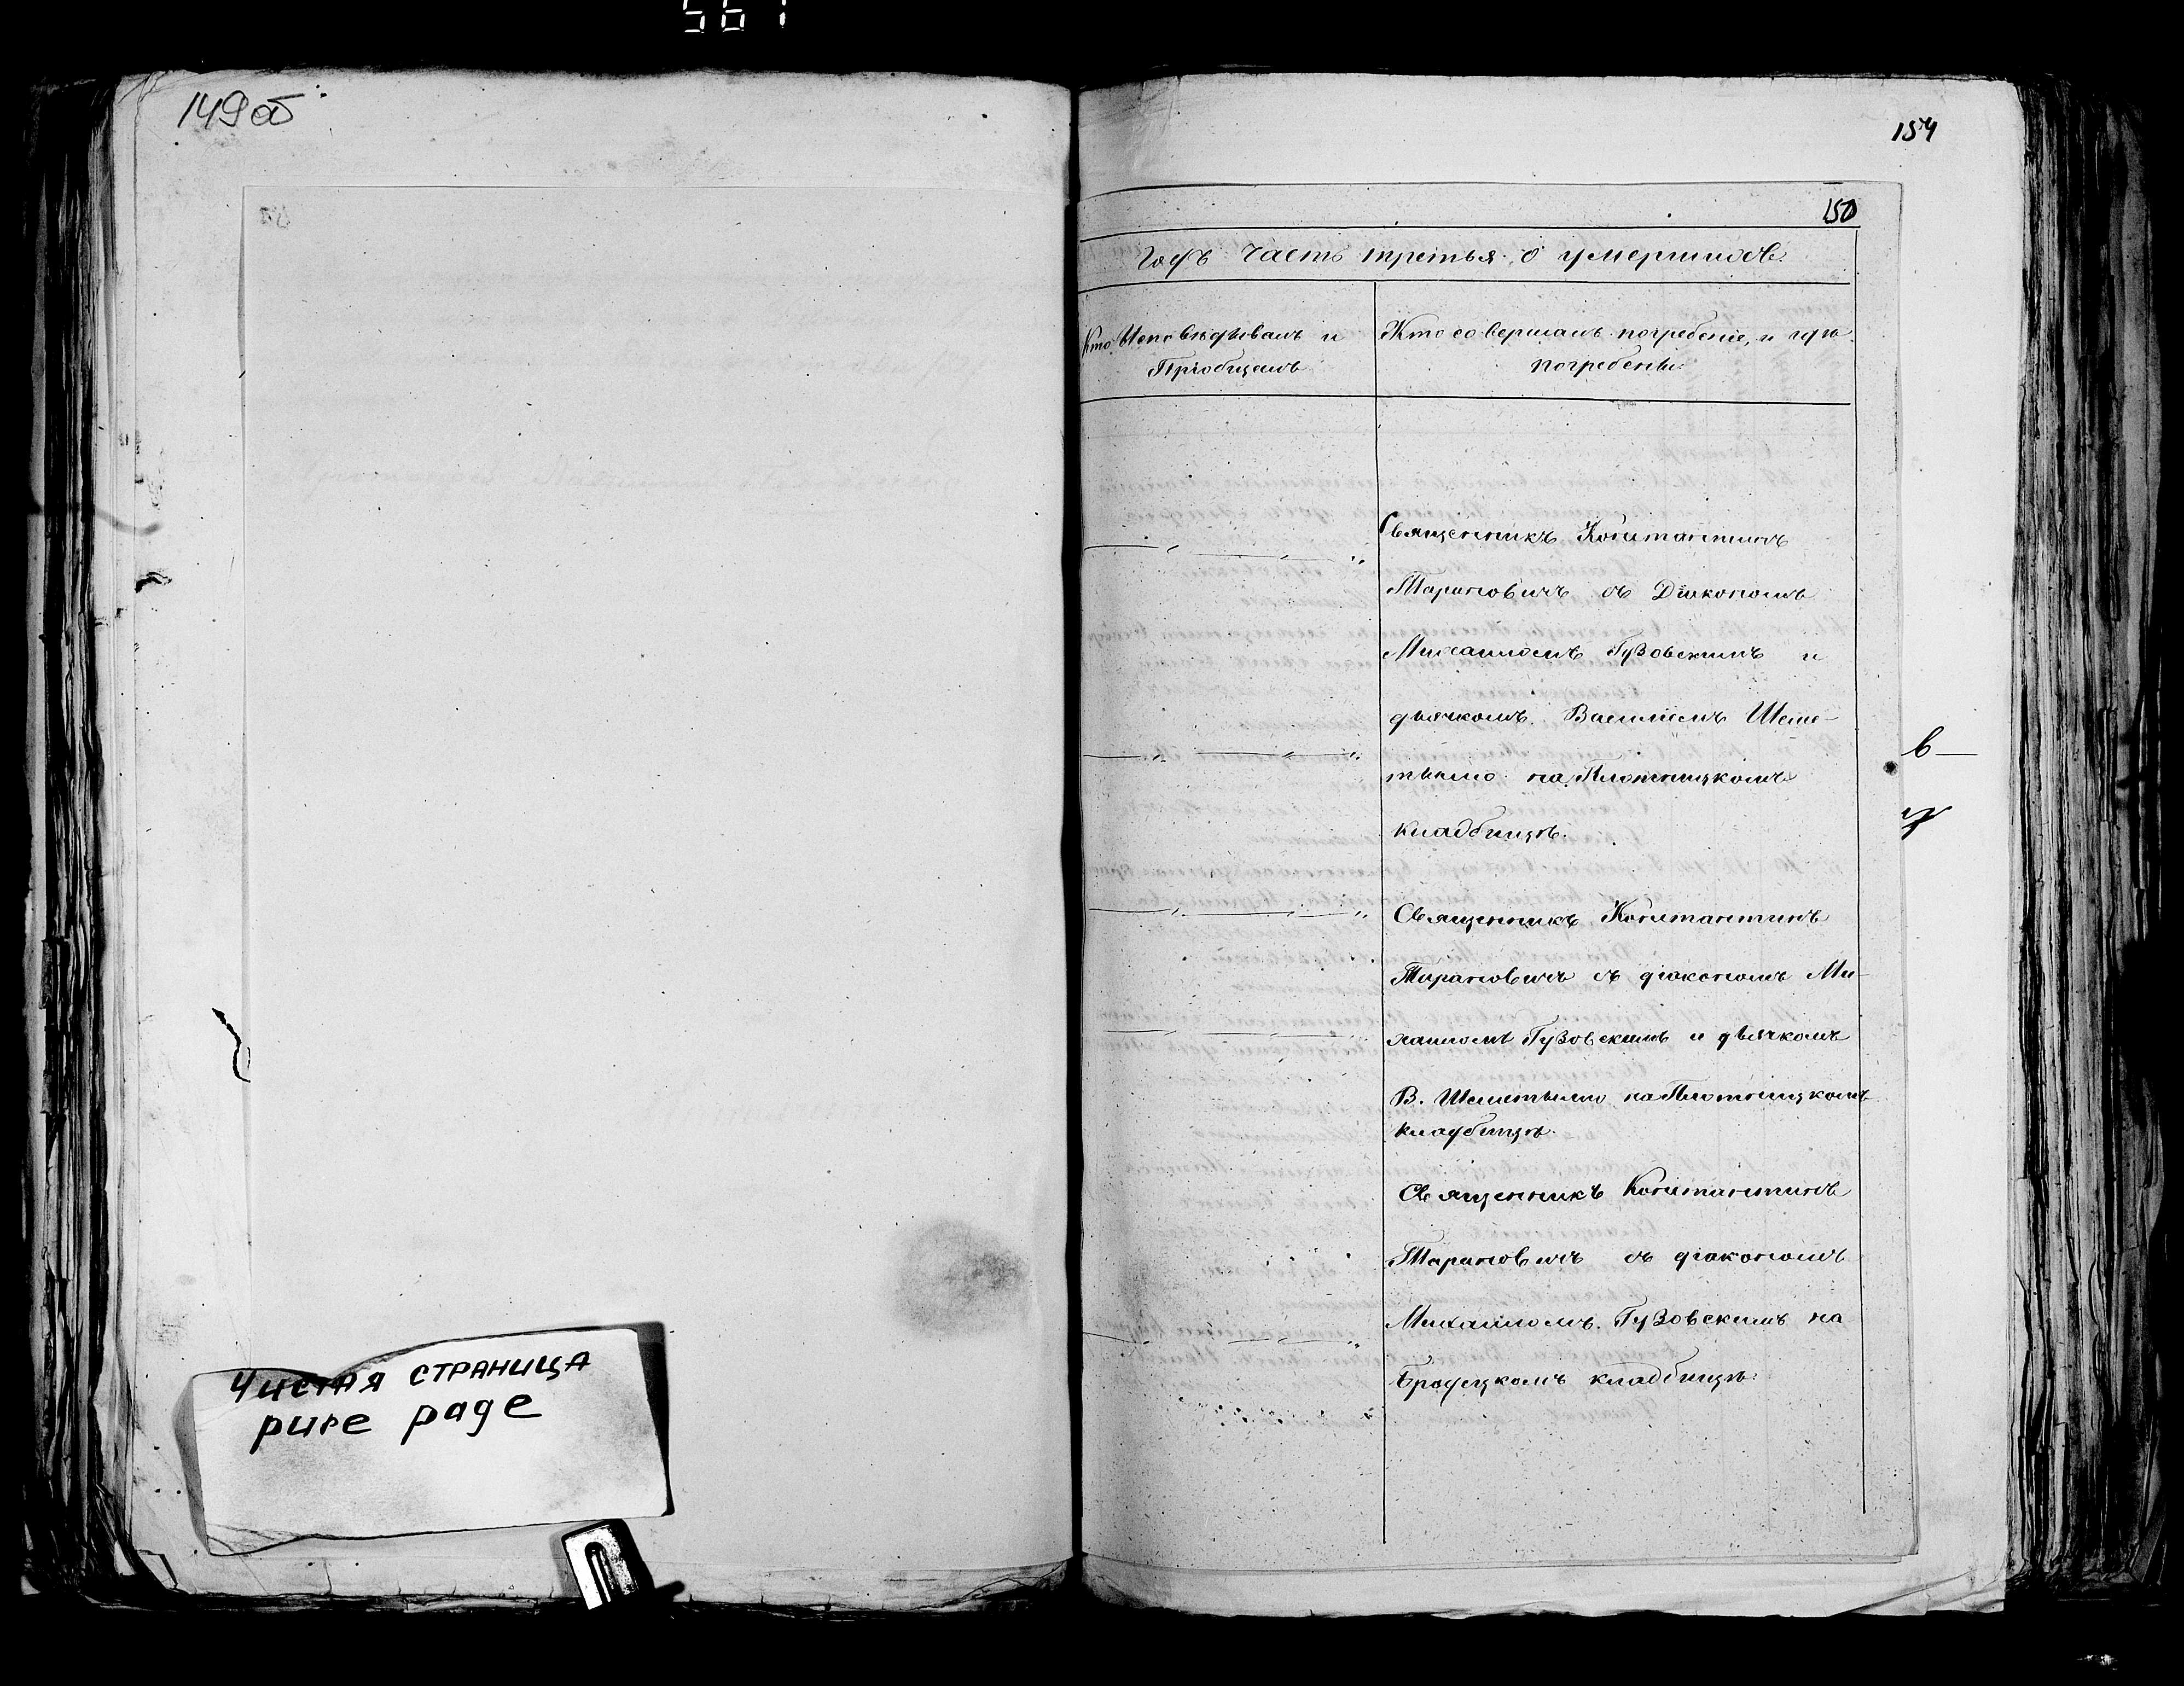 561
149 об
Чистая страница
pure page
154
150
Годъ часть третья о умершихъ.
Кто Исповѣдывалъ и
Пріобщалъ
Кто совершалъ погребеніе, и гдѣ
погребены.
Священникъ Константинъ
Тарановичъ съ Діакономъ
Михаиломъ Гузовскимъ и
дьячкомъ Василіемъ Шеме-
тыло на Плотницкомъ
кладбищѣ.
Священникъ Константинъ
Тарановичъ съ діакономъ Ми-
хаиломъ Гузовскимъ и дьячкомъ
В. Шеметыло на Плотницкомъ
кладбищѣ.
Священникъ Константинъ
Тарановичъ съ діакономъ
Михаиломъ Гузовскимъ на
Бродецкомъ кладбищѣ.